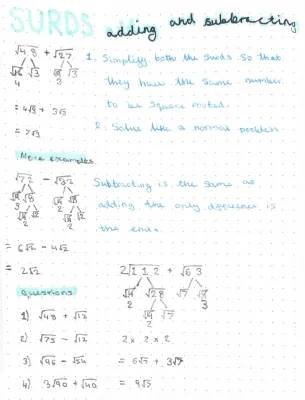 SURDS adding and subtracting
√48 + √27
√16 √3 √9 √3
4 3
= 4√3 + 3√3
= 7√3
1. Simplify both the surds so that
they have the same number
to be square rooted.
2. Solve like a normal problem
More examples
√72 - √32
= 6√2 - 4√2
= 2√2
Subtracting is the same as
adding the only difference is
the end.
2√112 + √63
√4 √28 √7 √9
2 3
√4 √7
2
2 x 2 x 2
= 6√7 + 3√7
= 9√7
Questions
1) √48 + √12
2) √75 - √12
3) √96 - √54
4) 3√90 + √40